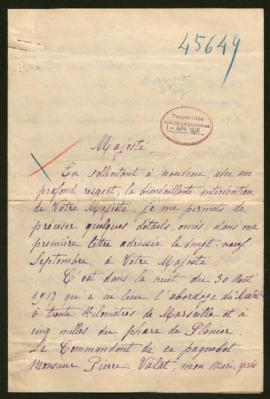 45649
Majesté
En sollicitant à nouveau avec un
profond respect, la bienveillante intervention
de Votre Majesté, je me permets de
préciser quelques détails, omis dans ma
première lettre adressée le vingt-neuf
Septembre, à Votre Majesté.
C'est dans la nuit du 30 Août
1917 qu'a eu lieu l'abordage du
à trente kilomètres de Marseille et à
cinq milles du phare de Planier.
Le Commandant de ce paquebot
Monsieur Pierre Valat, mon mari, pris